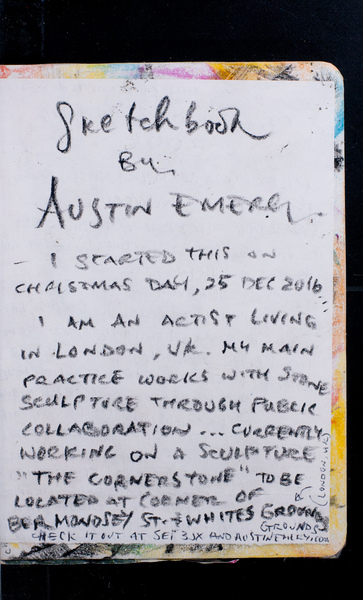 Sketchbook
By
AUSTIN EMERY.
- I STARTED THIS ON
CHRISTMAS DAY, 25 DEC 2016
I AM AN ARTIST LIVING
IN LONDON, UK. MY MAIN
PRACTICE WORKS WITH STONE
SCULPTURE THROUGH PUBLIC
COLLABORATION ... CURRENTLY
WORKING ON A SCULPTURE
"THE CORNERSTONE" TO BE
LOCATED AT CORNER OF
BERMONDSEY ST. & WHITES GROUNDS
GROUNDS
(LONDON, UK)
CHECK IT OUT AT SE1 3JX AND AUSTINEMERY.COM